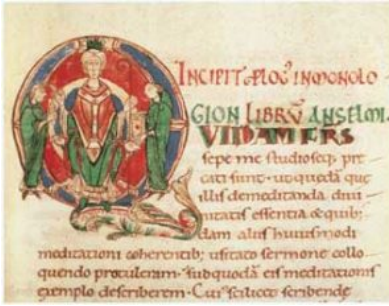 INCIPIT PLOG' IN MONOLO
GION LIBRŪ ANSELMI.
QUIDAM FRS
sepe me studioseq; pre
cati sunt. ut quedā que
illis de meditanda divi
nitatis essentia & quib;
dam aliis huiusmodi
meditationi coherentib; usitato sermone collo
quendo protuleram. sub quodā eis meditationis
exemplo describerem. Cui' scilicet scribende